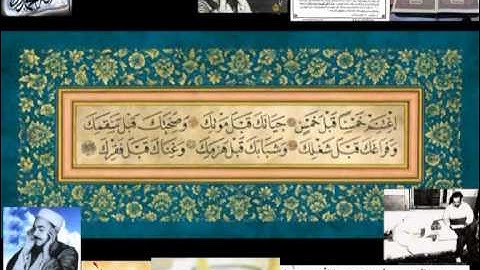 اغْتَنِمْ خَمْسًا قَبْلَ خَمْسٍ حَيَاتَكَ قَبْلَ مَوْتِكَ وَصِحَّتَكَ قَبْلَ سَقَمِكَ
وَفَرَاغَكَ قَبْلَ شُغْلِكَ وَشَبَابَكَ قَبْلَ هَرَمِكَ وَغِنَاكَ قَبْلَ فَقْرِكَ